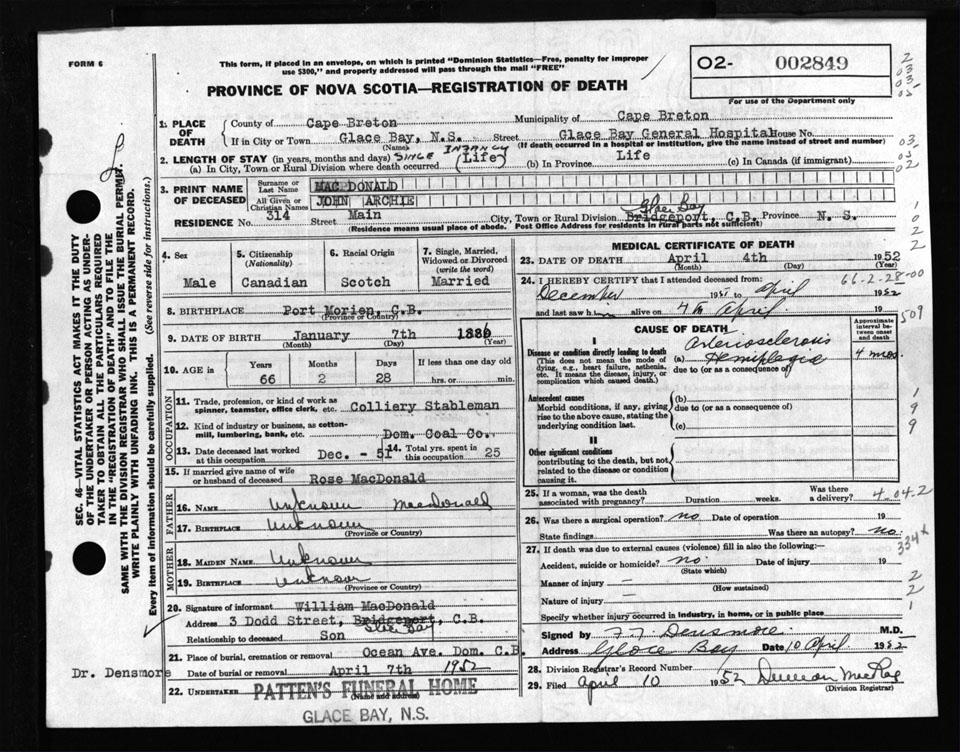 FORM 6
This form, if placed in an envelope, on which is printed "Dominion Statistics—Free, penalty for improper
use $300," and properly addressed will pass through the mail "FREE"
O2- 002849
For use of the Department only
PROVINCE OF NOVA SCOTIA—REGISTRATION OF DEATH
1. PLACE OF DEATH
County of Cape Breton Municipality of Cape Breton
If in City or Town Glace Bay, N.S. Street Glace Bay General Hospital House No.
(Name) (If death occurred in a hospital or institution, give the name instead of street and number)
2. LENGTH OF STAY (in years, months and days) SINCE INFANCY
(a) In City, Town or Rural Division where death occurred (Life) (b) In Province Life (c) In Canada (if immigrant)
3. PRINT NAME OF DECEASED
Surname or Last Name MAC DONALD
All Given or Christian Names JOHN ARCHIE
Glace Bay
RESIDENCE No. 314 Street Main City, Town or Rural Division Bridgeport, C.B. Province N. S.
(Residence means usual place of abode. Post Office Address for residents in rural parts not sufficient)
4. Sex
Male
5. Citizenship
(Nationality)
Canadian
6. Racial Origin
Scotch
7. Single, Married,
Widowed or Divorced
(write the word)
Married
8. BIRTHPLACE Port Morien, C.B.
(Province or Country)
9. DATE OF BIRTH January 7th 1886
(Month) (Day) (Year)
10. AGE in Years Months Days If less than one day
66 2 28 hrs. or min.
OCCUPATION
11. Trade, profession, or kind of work as
spinner, teamster, office clerk, etc. Colliery Stableman
12. Kind of industry or business, as cotton-
mill, lumbering, bank, etc. Dom. Coal Co.
13. Date deceased last worked
at this occupation Dec. - 51
14. Total yrs. spent in
this occupation 25
15. If married give name of wife
or husband of deceased Rose MacDonald
FATHER
16. NAME Unknown MacDonald
17. BIRTHPLACE Unknown
(Province or Country)
MOTHER
18. MAIDEN NAME Unknown
19. BIRTHPLACE Unknown
(Province or Country)
20. Signature of informant William MacDonald
Address 3 Dodd Street, Bridgeport, C.B.
Glace Bay
Relationship to deceased Son
21. Place of burial, cremation or removal Ocean Ave. Dom. C.B.
Date of burial or removal April 7th 1952
22. UNDERTAKER PATTEN'S FUNERAL HOME
(Name and address)
GLACE BAY, N.S.
Dr. Densmore
MEDICAL CERTIFICATE OF DEATH
23. DATE OF DEATH April 4th 1952
(Month) (Day) (Year)
66-2-28-00
24. I HEREBY CERTIFY that I attended deceased from:
December 1951 to April 1952
and last saw h alive on 4th April 19
509
CAUSE OF DEATH
Approximate
interval between
onset and
death
I
Disease or condition directly leading to death
(This does not mean the mode of
dying, e.g., heart failure, asthenia,
etc. It means the disease, injury, or
complication which caused death.)
Arteriosclerosis
(a) Hemiplegia 4 mos.
due to (or as a consequence of)
Antecedent causes
Morbid conditions, if any, giving
rise to the above cause, stating the
underlying condition last.
(b)
due to (or as a consequence of)
(c)
II
Other significant conditions
contributing to the death, but not
related to the disease or condition
causing it.
25. If a woman, was the death
associated with pregnancy? Duration weeks. Was there
a delivery? 4-04-2
26. Was there a surgical operation? no Date of operation 19
State findings Was there an autopsy? no.
334x
27. If death was due to external causes (violence) fill in also the following:—
Accident, suicide or homicide? no. Date of injury 19
(State which)
Manner of injury —
(How sustained)
Nature of injury —
Specify whether injury occurred in industry, in home, or in public place
Signed by Densmore M.D.
Address Glace Bay Date 10 April 1952
28. Division Registrar's Record Number
29. Filed April 10 1952 Duncan MacRae
(Division Registrar)
SEC. 46—VITAL STATISTICS ACT MAKES IT THE DUTY
OF THE UNDERTAKER OR PERSON ACTING AS UNDER-
TAKER TO OBTAIN ALL THE PARTICULARS REQUIRED
IN THE "REGISTRATION OF DEATH" AND TO FILE THE
SAME WITH THE DIVISION REGISTRAR WHO SHALL ISSUE THE BURIAL PERMIT.
WRITE PLAINLY WITH UNFADING INK. THIS IS A PERMANENT RECORD.
Every item of information should be carefully supplied. (See reverse side for instructions.)